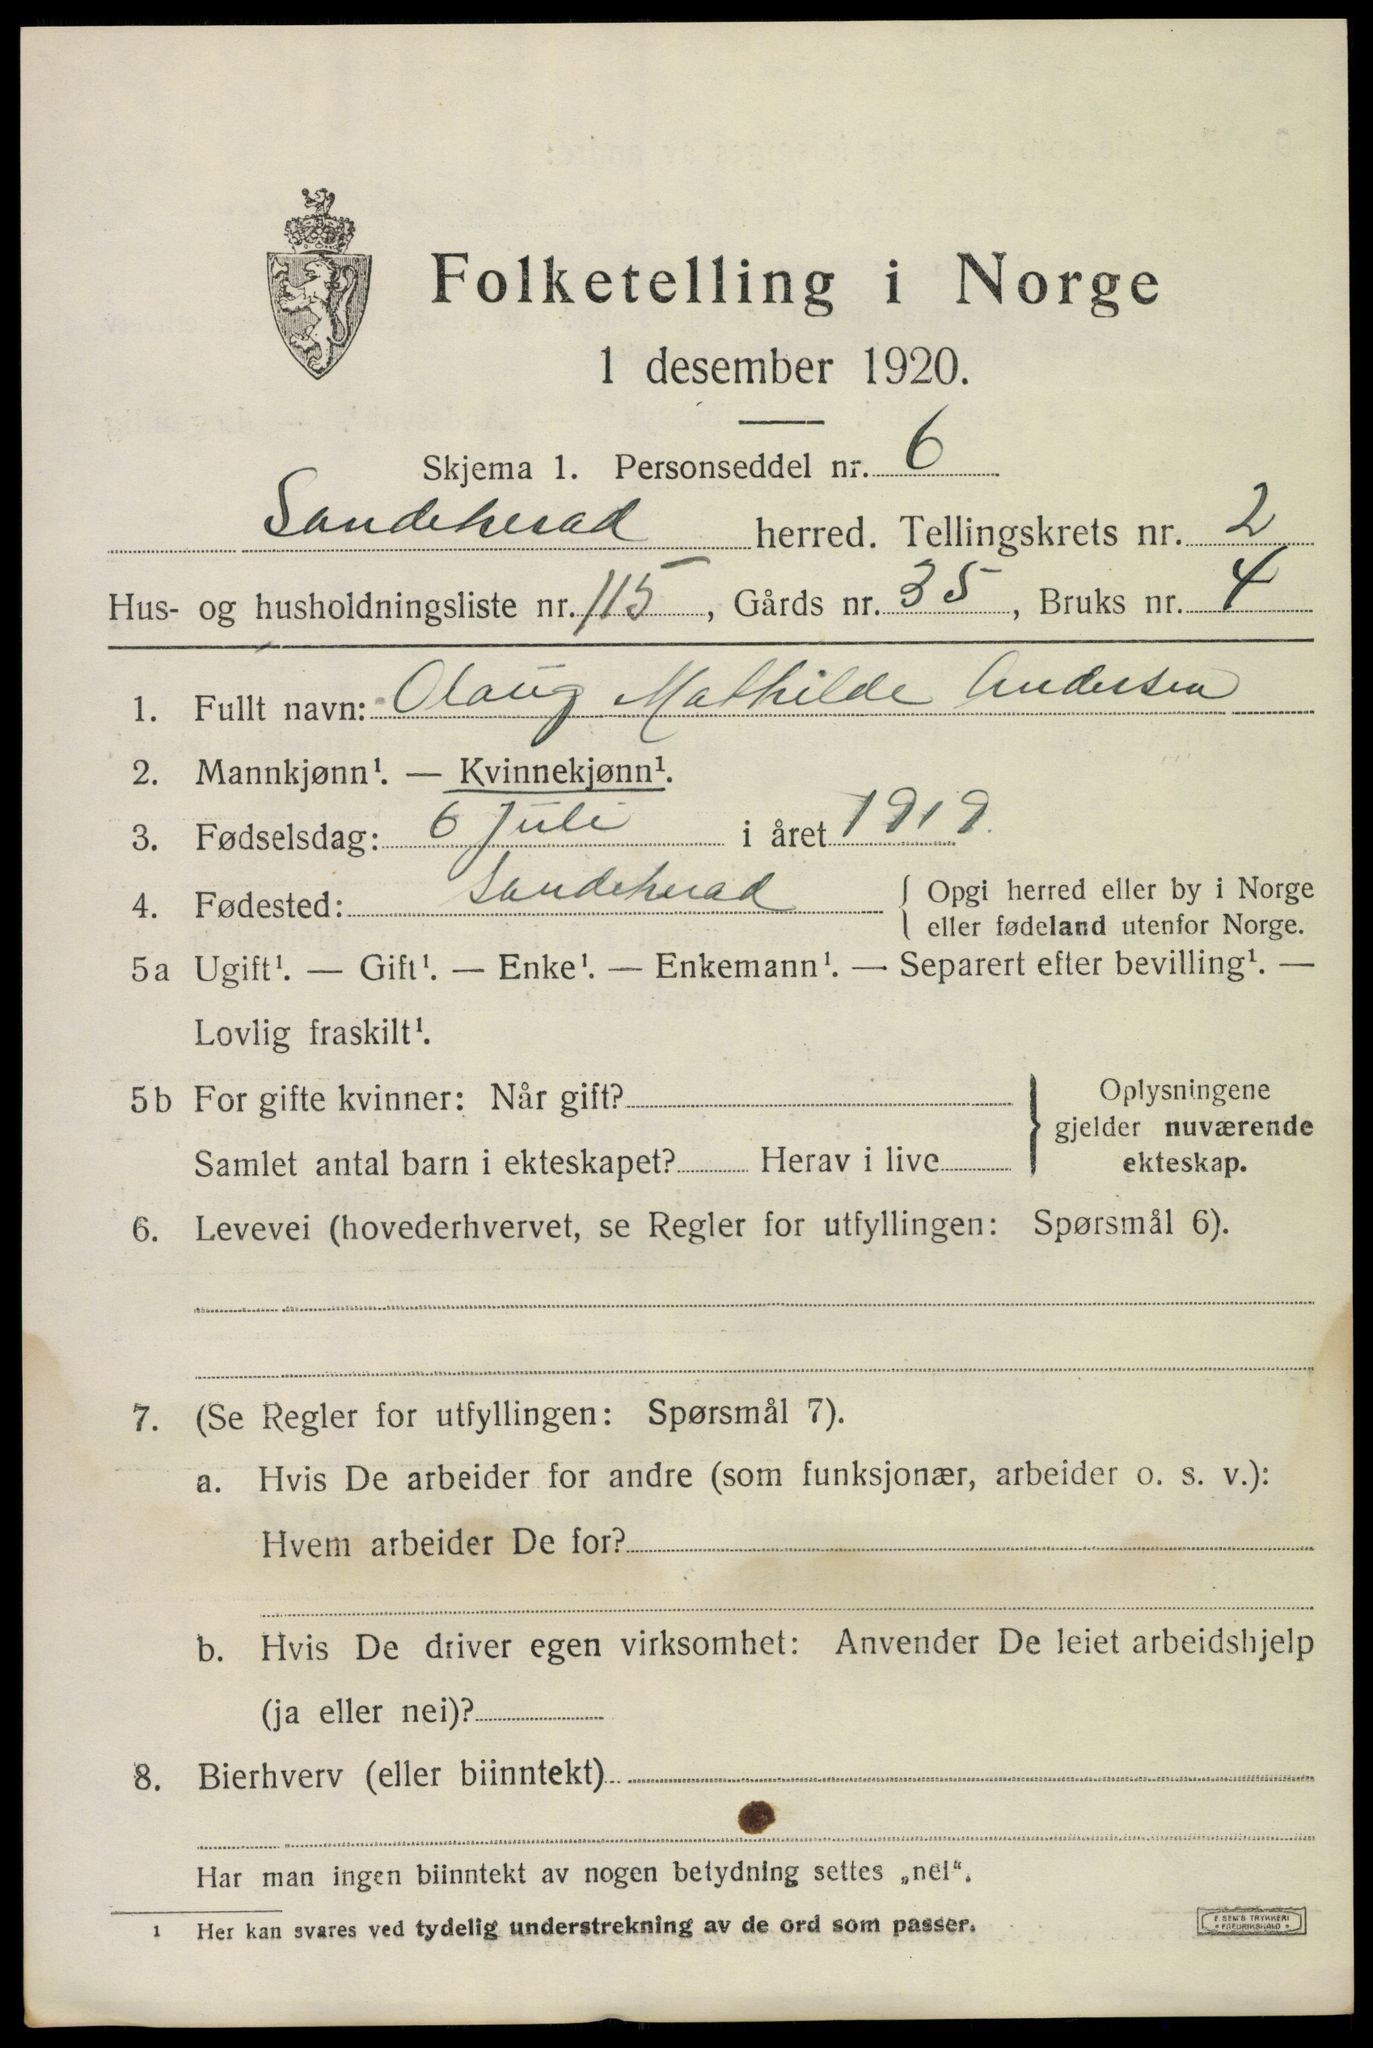 Folketelling i Norge
1 desember 1920.
Skjema 1. Personseddel nr. 6
Sandeherad herred. Tellingskrets nr. 2
Hus- og husholdningsliste nr. 115, Gårds nr. 35, Bruks nr. 4
1. Fullt navn: Olaug Mathilde Andersen
2. Mannkjønn¹. — Kvinnekjønn¹.
3. Fødselsdag: 6 Juli i året 1919.
4. Fødested: Sandeherad { Opgi herred eller by i Norge
eller fødeland utenfor Norge.
5a Ugift¹. — Gift¹. — Enke¹. — Enkemann¹. — Separert efter bevilling¹. —
Lovlig fraskilt¹.
5b For gifte kvinner: Når gift? } Oplysningene
gjelder nuværende
Samlet antal barn i ekteskapet? Herav i live ekteskap.
6. Levevei (hovederhvervet, se Regler for utfyllingen: Spørsmål 6).
7. (Se Regler for utfyllingen: Spørsmål 7).
a. Hvis De arbeider for andre (som funksjonær, arbeider o. s. v.):
Hvem arbeider De for?
b. Hvis De driver egen virksomhet: Anvender De leiet arbeidshjelp
(ja eller nei)?
8. Bierhverv (eller biinntekt)
Har man ingen biinntekt av nogen betydning settes „nei“.
1 Her kan svares ved tydelig understrekning av de ord som passer.
E. SEM'S TRYKKERI
FREDRIKSHALD